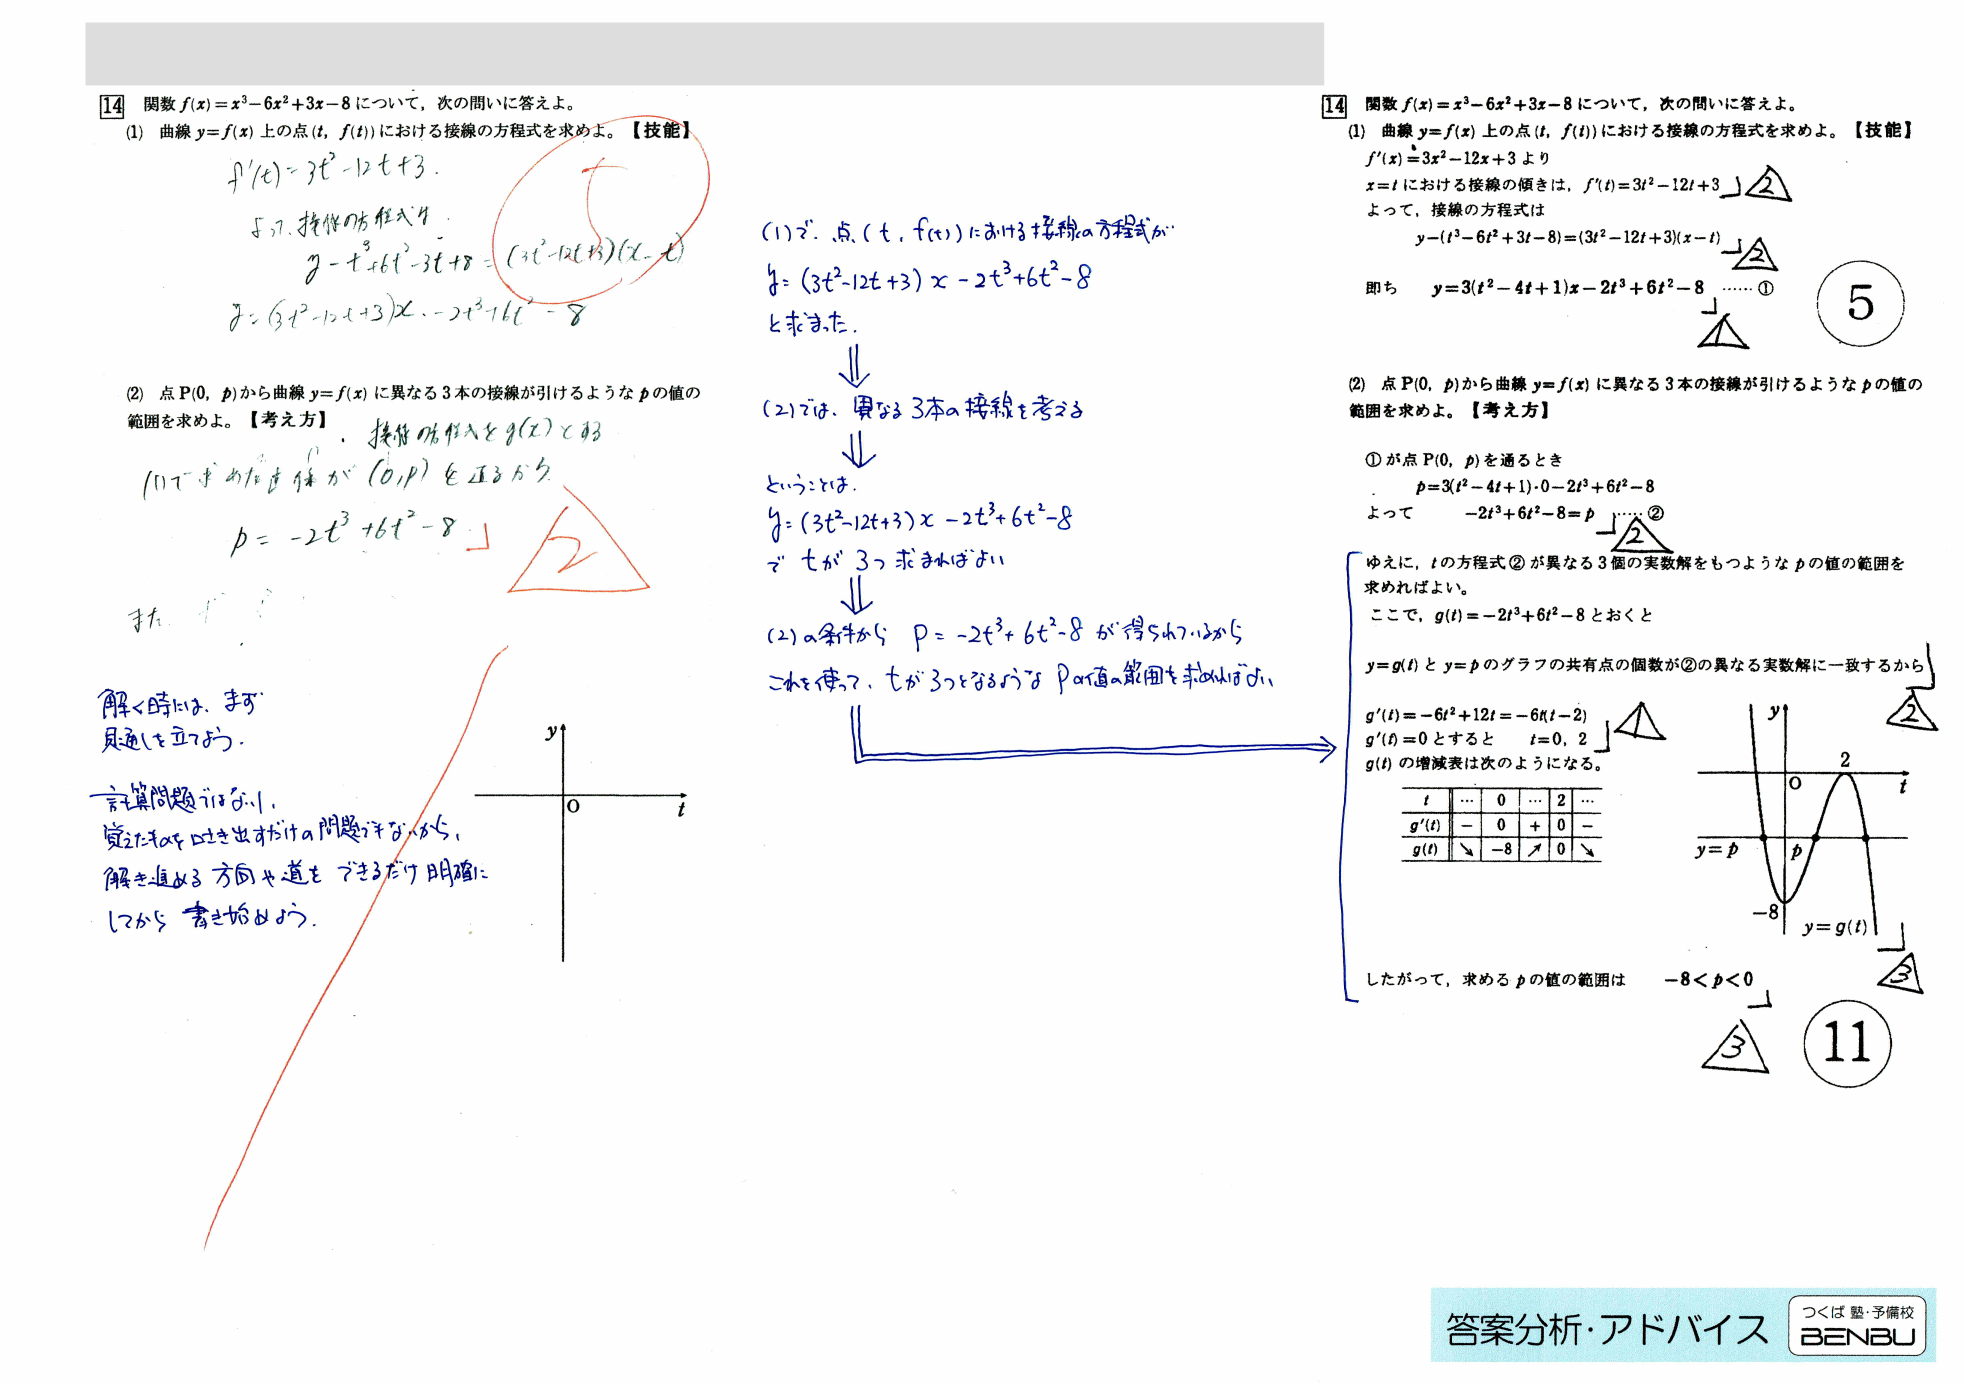 14 関数 f(x)=x³−6x²+3x−8について，次の問いに答えよ。
(1) 曲線 y=f(x) 上の点(t, f(t))における接線の方程式を求めよ。【技能】
f'(t)=3t²-12t+3.
よって、接線の方程式は
y-t³+6t²-3t+8=(3t²-12t+3)(x-t)
y=(3t²-12t+3)x-2t³+6t²-8
5
(2) 点P(0, p)から曲線 y=f(x) に異なる3本の接線が引けるような p の値の
範囲を求めよ。【考え方】
接線の方程式を g(x) とする
(1)で求めた接線が (0,p) を通るから
p = -2t³+6t²-8
2
また
解く時には、まず
見通しを立てよう.
計算問題ではないし、
覚えたものを吐き出すだけの問題でもないから、
解き進める方向や道をできるだけ明確に
してから書き始めよう.
y
O
t
(1)で、点(t, f(t))における接線の方程式が
y=(3t²-12t+3)x-2t³+6t²-8
と求まった.
⇓
(2)では、異なる3本の接線を考える
⇓
ということは、
y=(3t²-12t+3)x-2t³+6t²-8
で tが3つ求まればよい
⇓
(2)の条件から P=-2t³+6t²-8 が得られているから
これを使って、tが3つとなるような Pの値の範囲を求めればよい
14 関数 f(x)=x³−6x²+3x−8について，次の問いに答えよ。
(1) 曲線 y=f(x) 上の点(t, f(t))における接線の方程式を求めよ。【技能】
f'(x)=3x²−12x+3より
x=tにおける接線の傾きは，f'(t)=3t²−12t+3 2
よって，接線の方程式は
y−(t³−6t²+3t−8)=(3t²−12t+3)(x−t) 2
即ち y=3(t²−4t+1)x−2t³+6t²−8 ……①
1
5
(2) 点P(0, p)から曲線 y=f(x) に異なる3本の接線が引けるような p の値の
範囲を求めよ。【考え方】
①が点P(0, p)を通るとき
p=3(t²−4t+1)·0−2t³+6t²−8
よって −2t³+6t²−8=p ……②
2
ゆえに，tの方程式②が異なる3個の実数解をもつような p の値の範囲を
求めればよい。
ここで，g(t)=−2t³+6t²−8とおくと
y=g(t)と y=p のグラフの共有点の個数が②の異なる実数解に一致するから
2
g'(t)=−6t²+12t=−6t(t−2)
g'(t)=0とすると t=0, 2
1
g(t) の増減表は次のようになる。
t … 0 … 2 …
g'(t) − 0 + 0 −
g(t) ↘ −8 ↗ 0 ↘
y
2
O
t
y=p
p
−8
y=g(t)
3
したがって，求める p の値の範囲は −8<p<0
3
11
答案分析・アドバイス
つくば 塾・予備校
BENBU